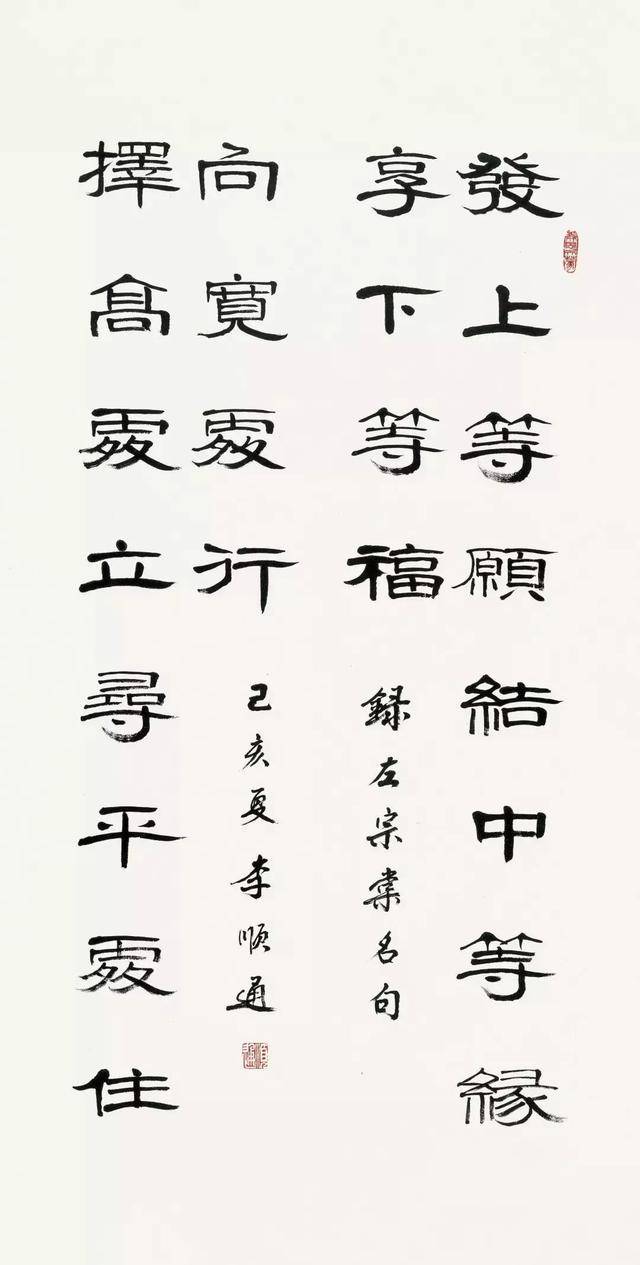 發上等願結中等緣
享下等福
録左宗棠名句
擇高處立尋平處住
向寬處行
己亥夏李順通